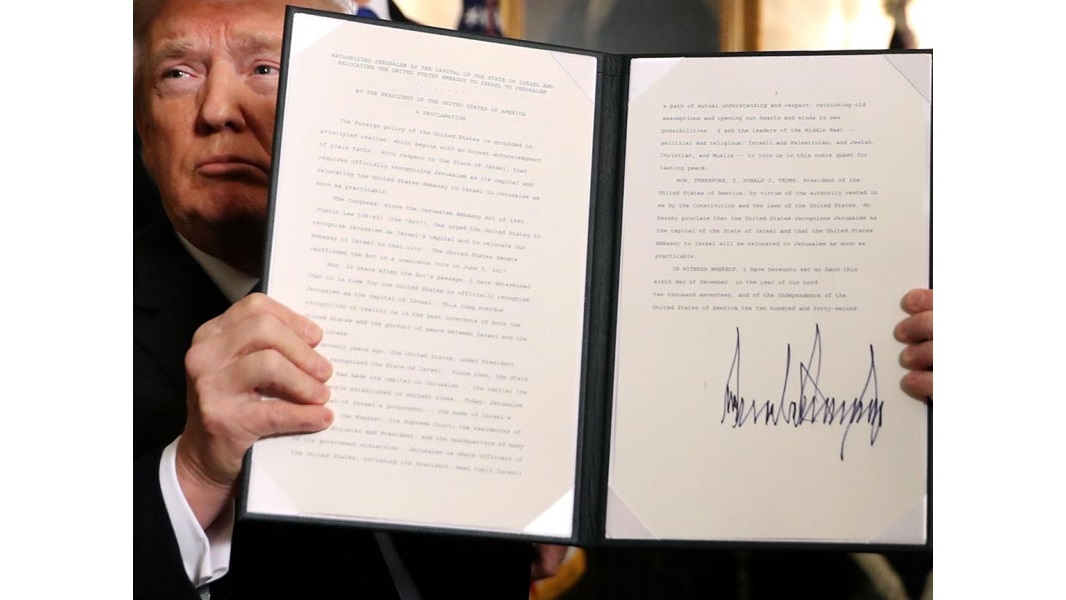 RECOGNIZING JERUSALEM AS THE CAPITAL OF THE STATE OF ISRAEL AND
RELOCATING THE UNITED STATES EMBASSY TO ISRAEL TO JERUSALEM
- - - - - - -
BY THE PRESIDENT OF THE UNITED STATES OF AMERICA
A PROCLAMATION
The foreign policy of the United States is grounded in
principled realism, which begins with an honest acknowledgment
of plain facts. With respect to the State of Israel, that
requires officially recognizing Jerusalem as its capital and
relocating the United States Embassy to Israel to Jerusalem as
soon as practicable.
The Congress, since the Jerusalem Embassy Act of 1995
(Public Law 104-45) (the "Act"), has urged the United States to
recognize Jerusalem as Israel's capital and to relocate our
Embassy to Israel to that city. The United States Senate
reaffirmed the Act in a unanimous vote on June 5, 2017.
Now, 22 years after the Act's passage, I have determined
that it is time for the United States to officially recognize
Jerusalem as the capital of Israel. This long overdue
recognition of reality is in the best interests of both the
United States and the pursuit of peace between Israel and the
Seventy years ago, the United States, under President
recognized the State of Israel. Since then, the State
has made its capital in Jerusalem -- the capital the
people established in ancient times. Today, Jerusalem
of Israel's government -- the home of Israel's
the Knesset; its Supreme Court; the residences of
Minister and President; and the headquarters of many
of its government ministries. Jerusalem is where officials of
the United States, including the President, meet their Israeli
3
a path of mutual understanding and respect, rethinking old
assumptions and opening our hearts and minds to new
possibilities. I ask the leaders of the Middle East --
political and religious; Israeli and Palestinian; and Jewish,
Christian, and Muslim -- to join us in this noble quest for
lasting peace.
NOW, THEREFORE, I, DONALD J. TRUMP, President of the
United States of America, by virtue of the authority vested in
me by the Constitution and the laws of the United States, do
hereby proclaim that the United States recognizes Jerusalem as
the capital of the State of Israel and that the United States
Embassy to Israel will be relocated to Jerusalem as soon as
practicable.
IN WITNESS WHEREOF, I have hereunto set my hand this
sixth day of December, in the year of our Lord
two thousand seventeen, and of the Independence of the
United States of America the two hundred and forty-second.